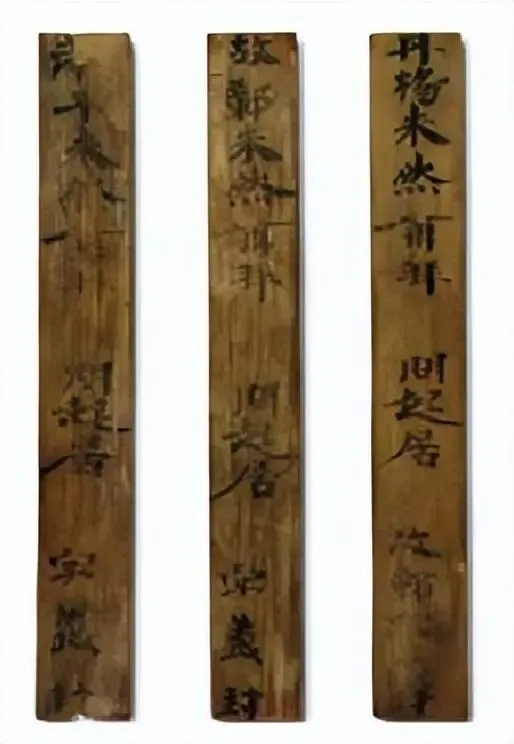 丹楊朱然再拜 問起居 故鄣
故鄣朱然再拜 問起居 字義封
弟子朱然再拜 問起居 字義封